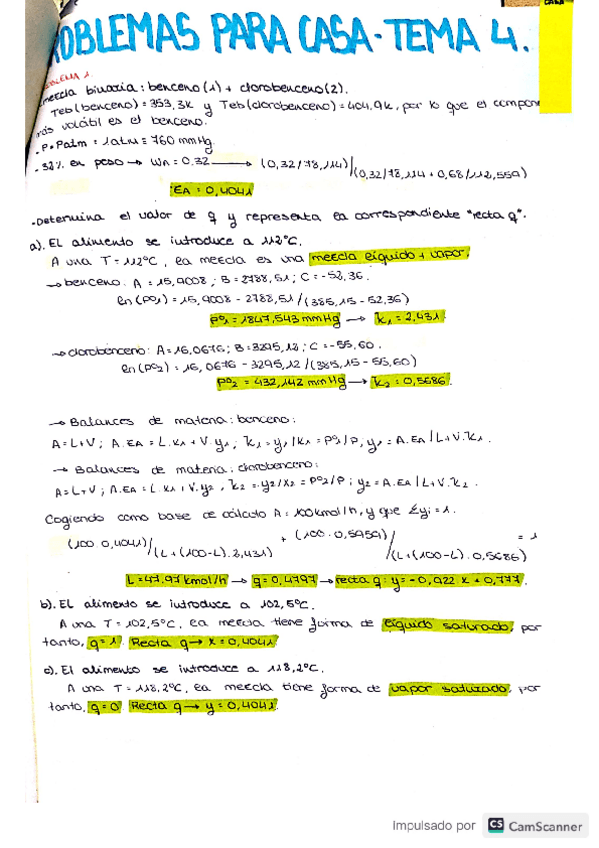 OBLEMAS PARA CASA - TEMA 4.
OBLEMA 1.
mezcla binaria: benceno (1) + clorobenceno (2).
Teb (benceno) = 353,3K y Teb (clorobenceno) = 404.9K, por lo que el compon
más volátil es el benceno.
. P = Patm = 1atm = 760 mmHg.
. 32% en peso → WA = 0,32 → (0,32/78,114)/(0,32/78,114 + 0,68/112,559)
EA = 0,4041
. Determina el valor de q y representa la correspondiente "recta q".
a). El alimento se introduce a 112ºC.
A una T = 112ºC, la mezcla es una mezcla líquido + vapor.
→ benceno: A = 15,9008; B = 2788,51; C = -52,36.
ln (Pº1) = 15,9008 - 2788,51/(385,15 - 52,36)
Pº1 = 1847,543 mmHg → K1 = 2,431.
→ clorobenceno: A = 16,0676; B = 3295,12; C = -55,60.
ln (Pº2) = 16,0676 - 3295,12/(385,15 - 55,60)
Pº2 = 432,142 mmHg → K2 = 0,5686.
→ Balances de materia: benceno:
A = L + V; A.EA = L.x1 + V.y1; K1 = y1/x1 = Pº1/P, y1 = A.EA/L+V.K1.
→ Balances de materia: clorobenceno:
A = L + V; A.EA = L.x2 + V.y2, K2 = y2/x2 = Pº2/P; y2 = A.EA/L+V.K2.
Cogiendo como base de cálculo A = 100 kmol/h, y que Σyi = 1.
(100.0,4041)/(L + (100-L).2,431) + (100.0,5959)/(L + (100-L).0,5686) = 1
L = 47,97 kmol/h → q = 0,4797 → recta q: y = -0,922 x + 0,777.
b). El alimento se introduce a 102,5ºC.
A una T = 102,5ºC, la mezcla tiene forma de líquido saturado, por
tanto, q = 1. Recta q → x = 0,4041.
c). El alimento se introduce a 118,2ºC.
A una T = 118,2ºC, la mezcla tiene forma de vapor saturado, por
tanto, q = 0. Recta q → y = 0,4041.
Impulsado por CS CamScanner